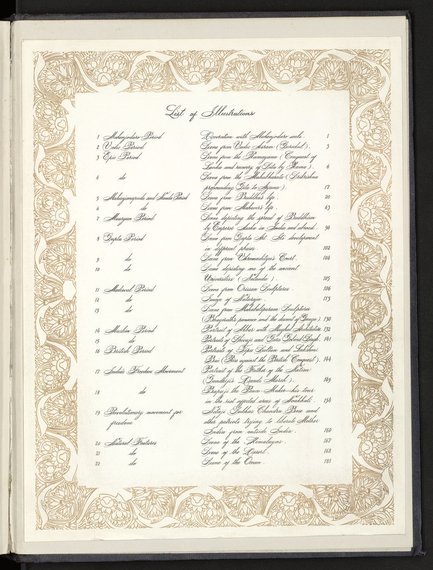 List of Illustrations
1 Mohenjodaro Period Decoration with Mohenjodaro seals. 1
2 Vedic Period Scene from Vedic Asram (Gurukul). 3
3 Epic Period Scene from the Ramayana (Conquest of
Lanka and recovery of Sita by Rama). 6
4 do Scene from the Mahabharata (Srikrishna
propounding Gita to Arjuna). 17
5 Mahajanapada and Nanda Period Scene from Buddha's life. 20
6 do Scene from Mahavir's life. 63
7 Mauryan Period Scene depicting the spread of Buddhism
by Emperor Asoka in India and abroad. 98
8 Gupta Period Scene from Gupta Art. Its development
in different phases. 102
9 do Scene from Vikramaditya's Court. 104
10 do Scene depicting one of the ancient
Universities (Nalanda). 105
11 Medieval Period Scene from Orissan Sculptures. 106
12 do Image of Nataraja. 113
13 do Scene from Mahabalipuram Sculptures
(Bhagirath's penance and the descent of Ganga). 130
14 Muslim Period Portrait of Akbar with Mughal Architecture. 132
15 do Portraits of Shivaji and Guru Gobind Singh. 141
16 British Period Portraits of Tipu Sultan and Lakshmi
Bai (Rise against the British Conquest). 144
17 India's Freedom Movement Portrait of the Father of the Nation
(Gandhiji's Dandi March). 149
18 do Bapuji the Peace-Maker—his tour
in the riot affected areas of Noakhali. 154
19 Revolutionary movement for Netaji Subhas Chandra Bose and
freedom other patriots trying to liberate Mother
India from outside India. 160
20 Natural Features Scene of the Himalayas. 167
21 do Scene of the Desert. 168
22 do Scene of the Ocean. 181